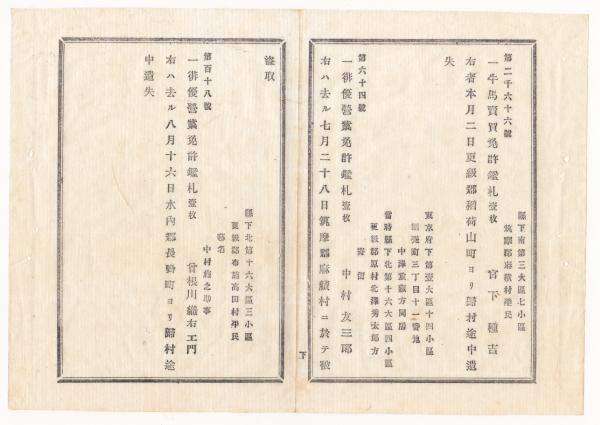 第二千六十六號
縣下南第三大區七小區
筑摩郡麻績村平民
一牛馬賣買免許鑑札壹枚
宮下種吉
右者本月二日更級郡稲荷山町ヨリ歸村途中遺
失
東京府下第壹大區十四小區
三丁目十一番地
中澤重藏方同居
第六十四號
當時縣下北第十六大區四小區
更級郡原村北澤秀太郎方
寄留
一俳優營業免許鑑札壹枚
中村友三郎
右ハ去ル七月二十八日筑摩郡麻績村ニ於テ被
下
盗取
縣下北第十六大區三小區
更級郡布施高田村平民
第百十八號
藝名
中村梅之助事
一俳優營業免許鑑札壹枚
曾根川織右エ門
右ハ去ル八月十六日水內郡長野町ヨリ歸村途
中遺失